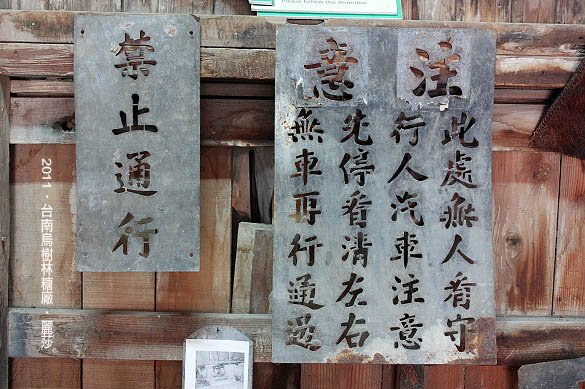 Please follow the direction
禁止通行
注意
此處無人看守
行人汽車注意
先停看清左右
無車再行通過
2011．台南烏樹林糖廠．麗莎